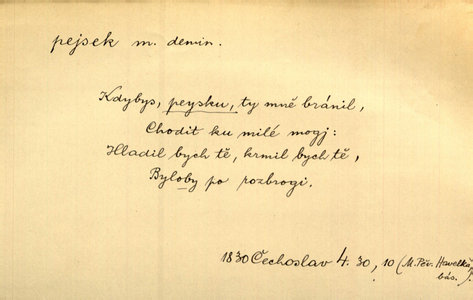 pejsek m. demin.
Kdybys, peysku, ty mně bránil,
Chodit ku milé mogj:
Hladil bych tě, krmil bych tě,
Byloby po rozbrogi.
1830 Čechoslav 4. 30, 10 (M. Pův. Havelka,
bás.).